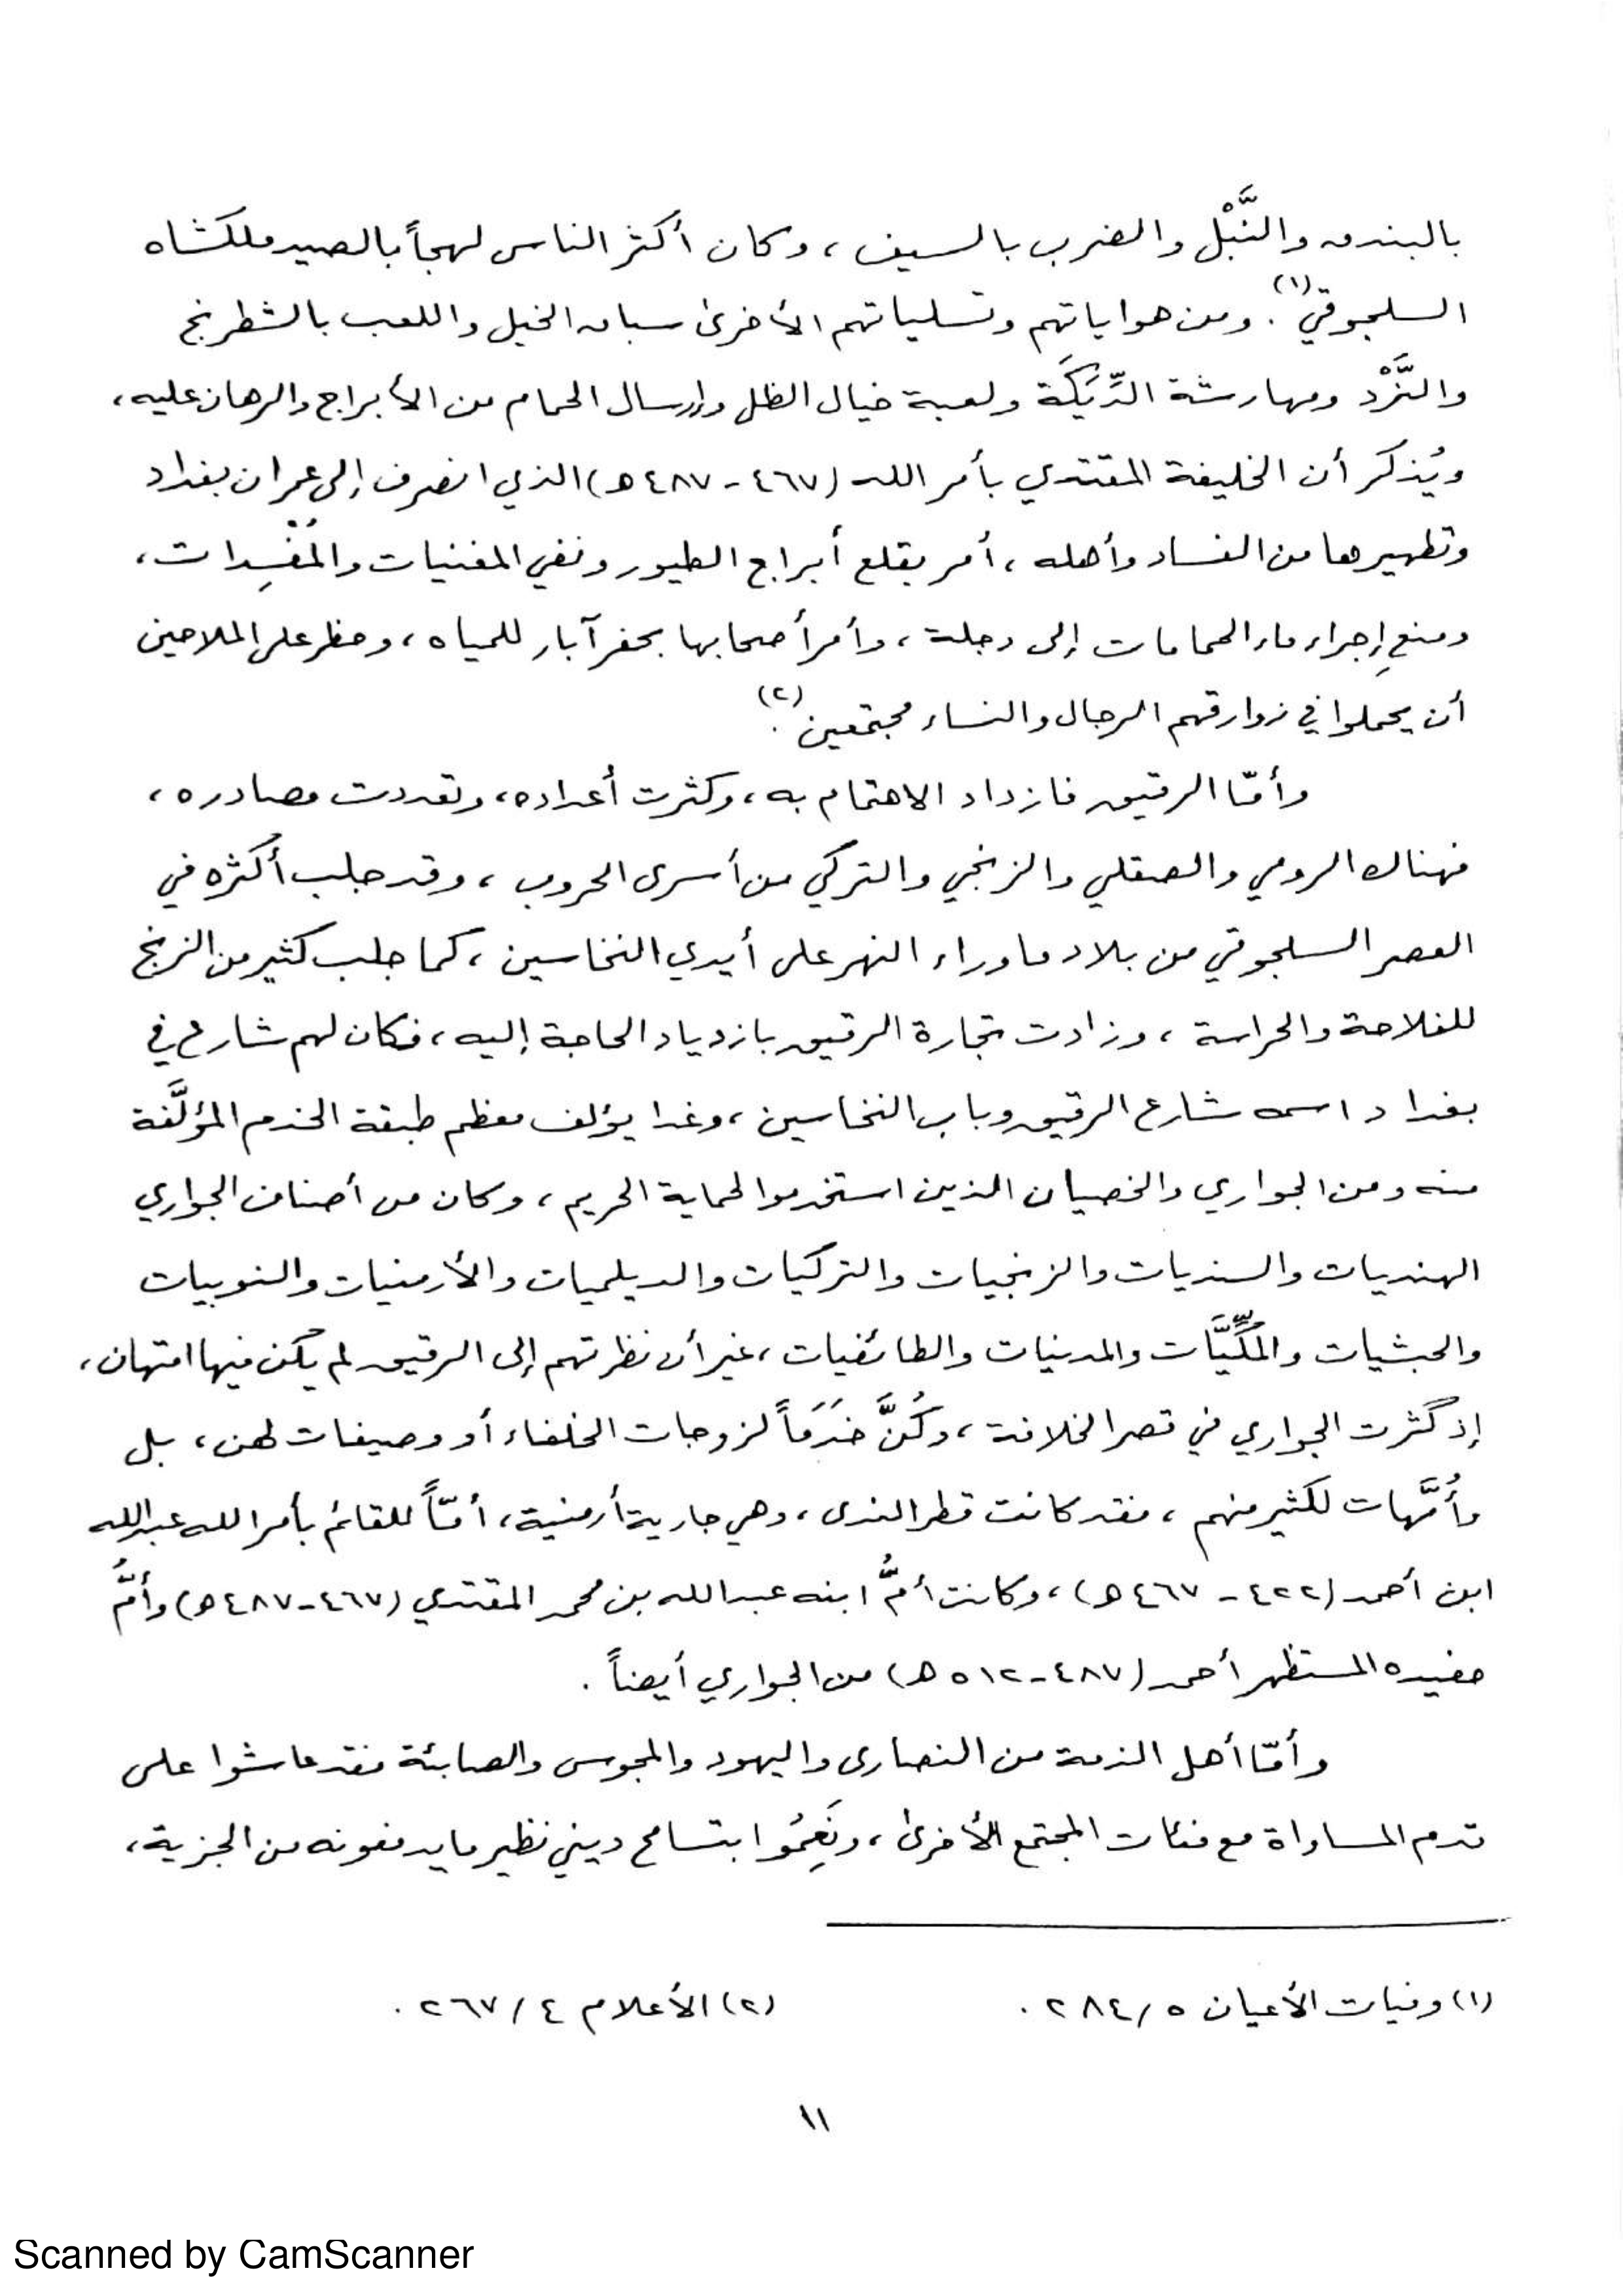 بالبندق والنَّبْل والضرب بالسيف ، وكان أكثر الناس لهجاً بالصيد ملكشاه
السلجوقي(١). ومن هواياتهم وتسلياتهم الأخرى سباق الخيل واللعب بالشطرنج
والنَّرْد ومهارشة الدِّيَكَة ولعبة خيال الظل وإرسال الحمام من الأبراج والرهان عليه ،
ويُذكر أن الخليفة المقتدي بأمر الله (٤٦٧ - ٤٨٧ هـ) الذي انصرف إلى عمران بغداد
وتطهيرها من الفساد وأهله ، أمر بقلع أبراج الطيور ونفي المغنيات والمُفْسِدات ،
ومنعِ إجراء ماء الحمامات إلى دجلة ، وأمر أصحابها بحفر آبار للمياه ، وحظر على الملاحين
أن يحملوا في زوارقهم الرجال والنساء مجتمعين(٢).
وأمّا الرقيق فازداد الاهتمام به ، وكثرت أعداده ، وتعددت مصادره ،
فهناك الرومي والصقلي والزنجي والتركي من أسرى الحروب ، وقد جلب أكثره في
العصر السلجوقي من بلاد ما وراء النهر على أيدي النخاسين ، كما جلب كثير من الزنج
للفلاحة والحراسة ، وزادت تجارة الرقيق بازدياد الحاجة إليه ، فكان لهم شارع في
بغداد اسمه شارع الرقيق وباب النخاسين ، وغدا يؤلف معظم طبقة الخدم المؤلَّفة
منه ومن الجواري والخصيان الذين استخدموا لحماية الحريم ، وكان من أصناف الجواري
الهنديات والسنديات والزنجيات والتركيات والديلميات والأرمنيات والنوبيات
والحبشيات والمَكِّيَّات والمدنيات والطائفيات ، غير أن نظرتهم إلى الرقيق لم يكن فيها امتهان ،
إذ كثرت الجواري في قصر الخلافة ، وكُنَّ خَدَمَاً لزوجات الخلفاء أو وصيفات لهن ، بل
وأُمَّهات لكثير منهم ، فقد كانت قطر الندى ، وهي جارية أرمنية ، أمّاً للقائم بأمر الله عبد الله
ابن أحمد (٤٢٢ - ٤٦٧ هـ) ، وكانت أمُّ ابنه عبد الله بن محمد المقتدي (٤٦٧-٤٨٧ هـ) وأمُّ
حفيده المستظهر أحمد (٤٨٧-٥١٢ هـ) من الجواري أيضاً .
وأمّا أهل الذمة من النصارى واليهود والمجوس والصابئة فقد عاشوا على
قدم المساواة مع فئات المجتمع الأخرى ، ونَعِمُوا بتسامح ديني نظير ما يدفعونه من الجزية ،
(١) وفيات الأعيان ٥/٢٨٤ .
(٢) الأعلام ٤/٢٦٧ .
١١
Scanned by CamScanner